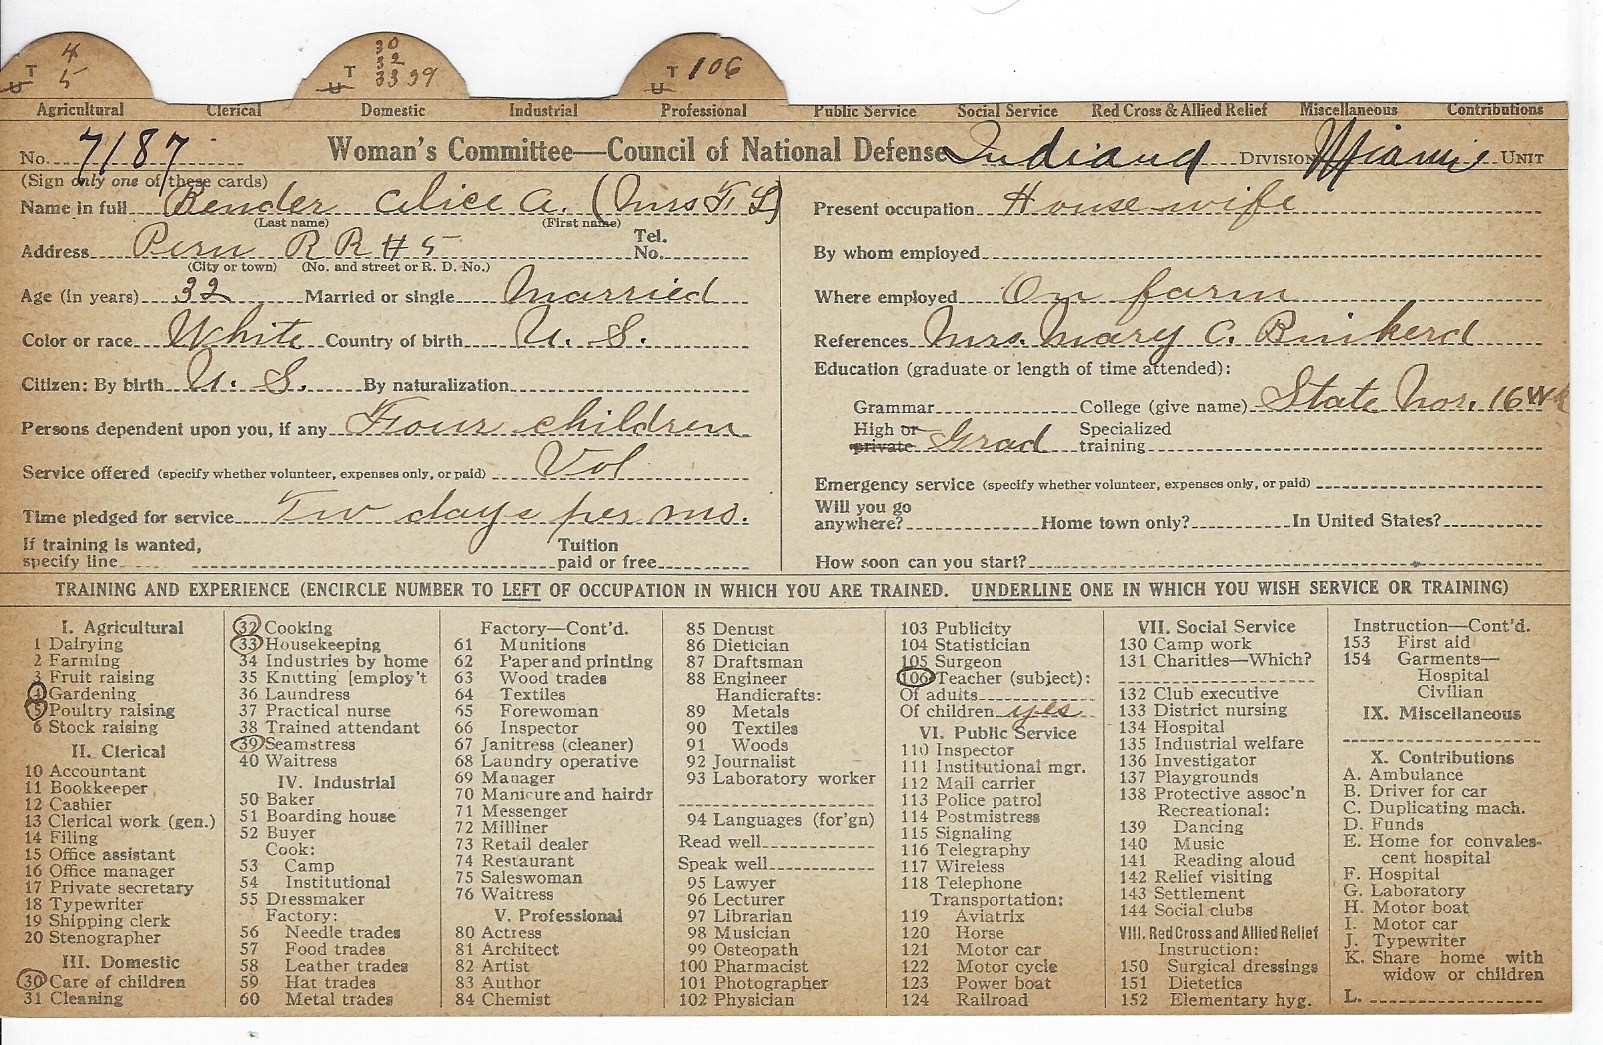 4
T 5
U
30
32
T 33 39
U
T 106
U
Agricultural Clerical Domestic Industrial Professional Public Service Social Service Red Cross & Allied Relief Miscellaneous Contributions
No. 7187 Woman's Committee—Council of National Defense Indiana DIVISION Miami UNIT
(Sign only one of these cards)
Name in full Bender Alice A. (Mrs F L)
(Last name) (First name)
Address Peru R R # 5 Tel. No.
(City or town) (No. and street or R. D. No.)
Age (in years) 32 Married or single Married
Color or race White Country of birth U. S.
Citizen: By birth U. S. By naturalization
Persons dependent upon you, if any Four children
Service offered (specify whether volunteer, expenses only, or paid) Vol
Time pledged for service Tw days per mo.
If training is wanted, specify line Tuition paid or free
Present occupation Housewife
By whom employed
Where employed On farm
References Mrs. Mary C. Binkerd
Education (graduate or length of time attended):
Grammar College (give name) State Nor. 16 Wk
High or private Grad Specialized training
Emergency service (specify whether volunteer, expenses only, or paid)
Will you go anywhere? Home town only? In United States?
How soon can you start?
TRAINING AND EXPERIENCE (ENCIRCLE NUMBER TO LEFT OF OCCUPATION IN WHICH YOU ARE TRAINED. UNDERLINE ONE IN WHICH YOU WISH SERVICE OR TRAINING)
I. Agricultural
1 Dairying
2 Farming
3 Fruit raising
4 Gardening
5 Poultry raising
6 Stock raising
II. Clerical
10 Accountant
11 Bookkeeper
12 Cashier
13 Clerical work (gen.)
14 Filing
15 Office assistant
16 Office manager
17 Private secretary
18 Typewriter
19 Shipping clerk
20 Stenographer
III. Domestic
30 Care of children
31 Cleaning
32 Cooking
33 Housekeeping
34 Industries by home
35 Knitting [employ't
36 Laundress
37 Practical nurse
38 Trained attendant
39 Seamstress
40 Waitress
IV. Industrial
50 Baker
51 Boarding house
52 Buyer
Cook:
53 Camp
54 Institutional
55 Dressmaker
Factory:
56 Needle trades
57 Food trades
58 Leather trades
59 Hat trades
60 Metal trades
Factory—Cont'd.
61 Munitions
62 Paper and printing
63 Wood trades
64 Textiles
65 Forewoman
66 Inspector
67 Janitress (cleaner)
68 Laundry operative
69 Manager
70 Manicure and hairdr
71 Messenger
72 Milliner
73 Retail dealer
74 Restaurant
75 Saleswoman
76 Waitress
V. Professional
80 Actress
81 Architect
82 Artist
83 Author
84 Chemist
85 Dentist
86 Dietician
87 Draftsman
88 Engineer
Handicrafts:
89 Metals
90 Textiles
91 Woods
92 Journalist
93 Laboratory worker
94 Languages (for'gn)
Read well
Speak well
95 Lawyer
96 Lecturer
97 Librarian
98 Musician
99 Osteopath
100 Pharmacist
101 Photographer
102 Physician
103 Publicity
104 Statistician
105 Surgeon
106 Teacher (subject):
Of adults
Of children yes
VI. Public Service
110 Inspector
111 Institutional mgr.
112 Mail carrier
113 Police patrol
114 Postmistress
115 Signaling
116 Telegraphy
117 Wireless
118 Telephone
Transportation:
119 Aviatrix
120 Horse
121 Motor car
122 Motor cycle
123 Power boat
124 Railroad
VII. Social Service
130 Camp work
131 Charities—Which?
132 Club executive
133 District nursing
134 Hospital
135 Industrial welfare
136 Investigator
137 Playgrounds
138 Protective assoc'n
Recreational:
139 Dancing
140 Music
141 Reading aloud
142 Relief visiting
143 Settlement
144 Social clubs
VIII. Red Cross and Allied Relief
Instruction:
150 Surgical dressings
151 Dietetics
152 Elementary hyg.
Instruction—Cont'd.
153 First aid
154 Garments—
Hospital
Civilian
IX. Miscellaneous
X. Contributions
A. Ambulance
B. Driver for car
C. Duplicating mach.
D. Funds
E. Home for convales-
cent hospital
F. Hospital
G. Laboratory
H. Motor boat
I. Motor car
J. Typewriter
K. Share home with
widow or children
L.